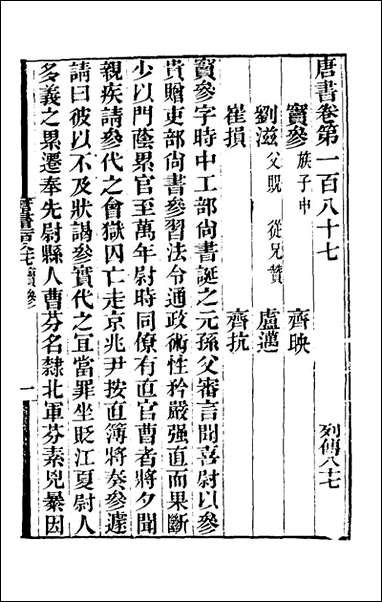 唐書卷第一百八十七 列傳八十七
竇參 族子申 齊映
劉滋 父貺 從兄贊 盧邁
崔損 齊抗
竇參字時中工部尚書誕之元孫父審言聞喜尉以參
貴贈吏部尚書參習法令通政術性矜嚴强直而果斷
少以門蔭累官至萬年尉時同僚有直官曹者將夕聞
親疾請參代之會獄囚亡走京兆尹按直簿將奏參遽
請曰彼以不及狀謁參實代之宜當罪坐貶江夏尉人
多義之累遷奉先尉縣人曹芬名隸北軍芬素兇暴因